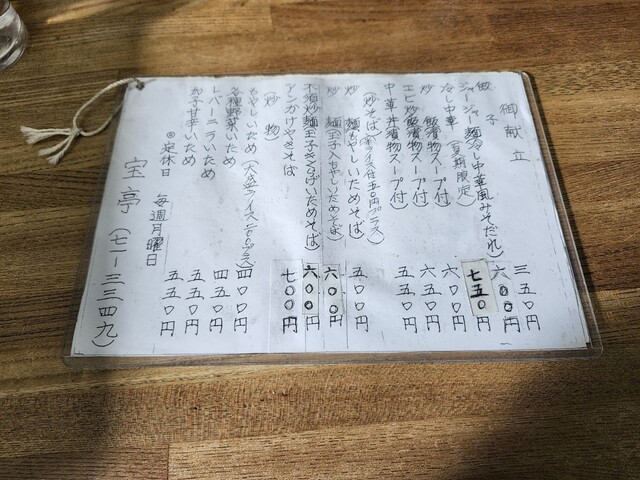 御献立
餃子 三五〇円
ジャージャー麺(冷し中華風みそだれ) 六〇〇円
冷し中華(夏期限定) 七五〇円
炒飯(漬物スープ付) 六〇〇円
エビ炒飯(漬物スープ付) 六五〇円
中華丼(漬物スープ付) 五五〇円
(炒そば 五〇円プラス)
炒麺(もやしいためそば) 五〇〇円
炒麺(玉子入もやしいためそば) 六〇〇円
木須炒麺(玉子きくらげいためそば) 六〇〇円
アンかけやきそば 七〇〇円
(炒物)
もやしいため(大盛ライス プラス) 四〇〇円
各種野菜いため 四五〇円
レバーニラいため 五五〇円
なす甘辛いため 五五〇円
◎定休日 毎週月曜日
宝亭(七一-三三四九)